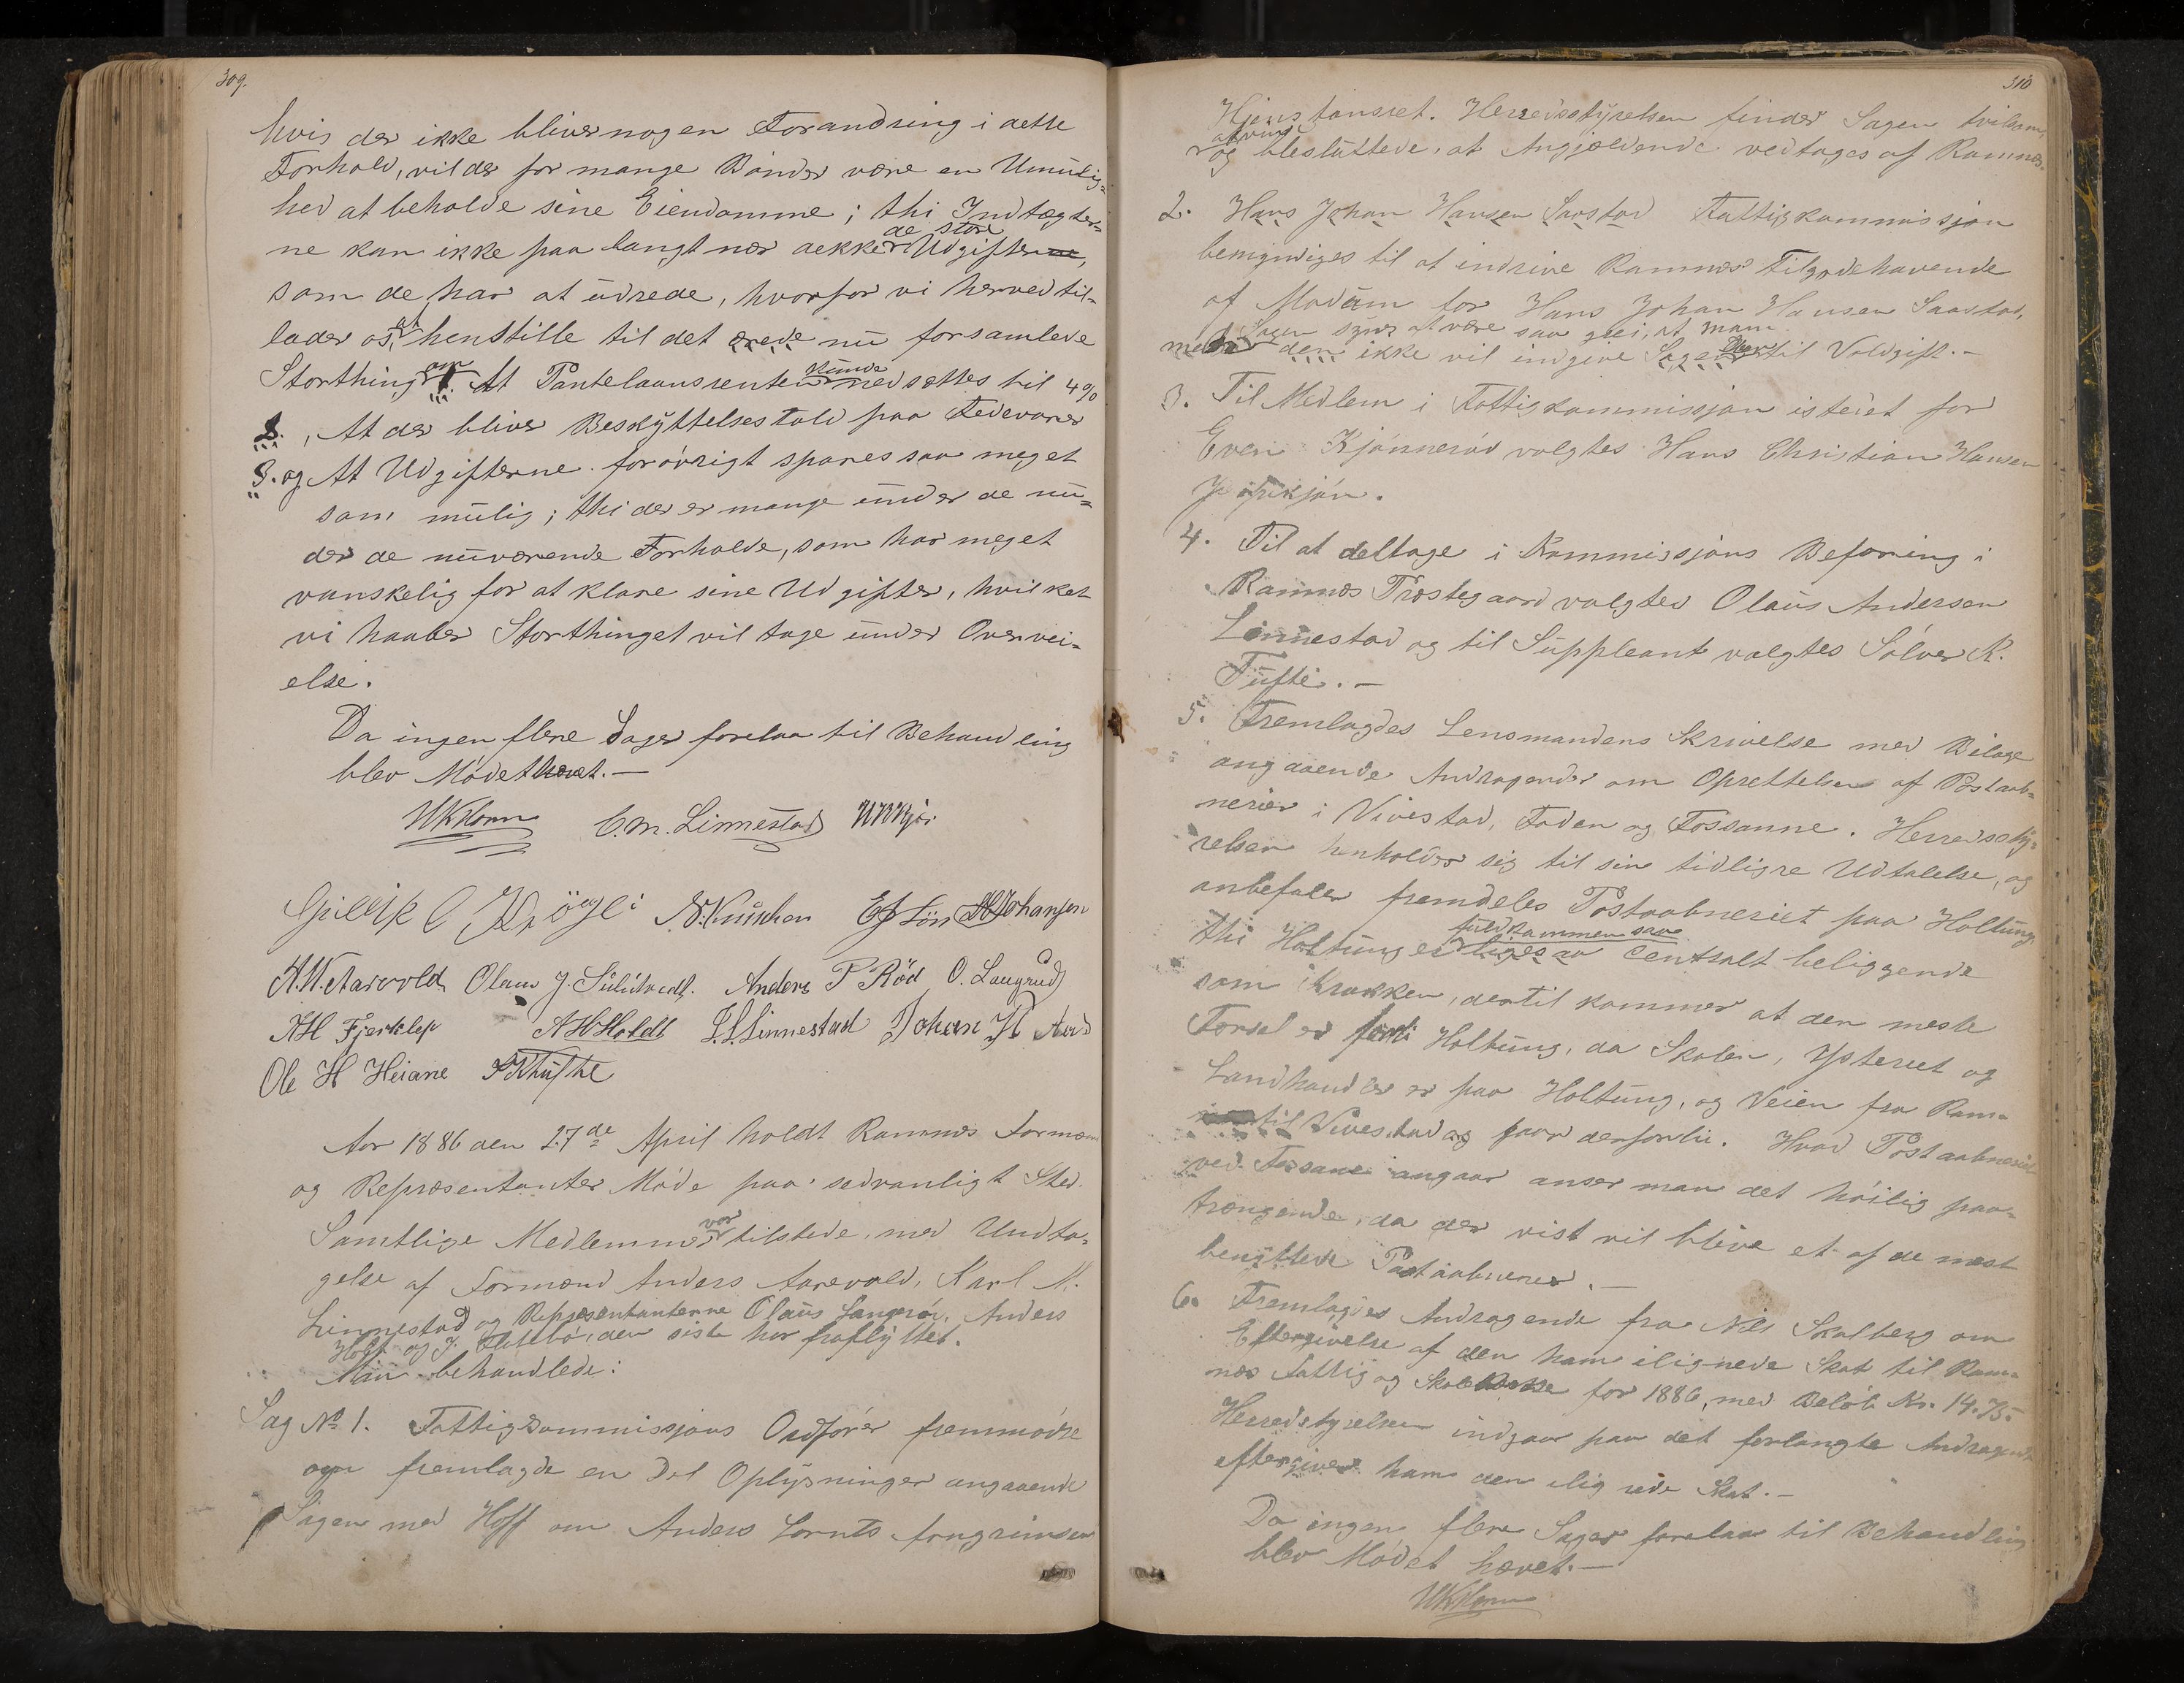 309.
hvis der ikke bliver nogen Forandring i dette
Forhold, vil der for mange Bönder være en Umulig=
hed at beholde sine Eiendomme; thi Indtægter=
de store
ne kan ikke paa langt nær dekke Udgifterne,
som de har at udrede, hvorfor vi herved til=
lader os at henstille til det ærede nu forsamlede
Storthing om 1. At Pantelaansrenten kunde nedsættes til 4%
2., At der bliver Beskyttelsestold paa Fedevarer
3. og At Udgifterne forövrigt spares saa meget
som mulig; thi der er mange under de nu=
der de nuværende Forholde, som har meget
vanskelig for at klare sine Udgifter, hvilket
vi haaber Storthinget vil tage under Overvei=
else.
Da ingen flere Sager forelaa til Behandling
blev Mödet hævet.—
C. M. Linnestad
A. Johansen
Olaus J. Anders P Röd O. Langrud
KH Fjerklep AHHoldt L. Linnestad Johan
Ole H Heiane
Aar 1886 den 27de April holdt Ramnes Formænd
og Repræsentanter Möde paa sedvanligt Sted.
var
Samtlige Medlemmer tilstede, med Undta=
gelse af Formænd Anders Aarevold, Karl M.
Linnestad og Repræsentanterne Olaus Langröd, Anders
Holt og J. den siste har fraflyttet.
Man behandlede:
Sag No 1. Fattigkommissjons Ordförer fremmödte
og fremlagde en Del Oplysninger angaaende
Sagen med Hoff om Anders Lornts Arngrimsen
310
Hjemstavnsret. Herredsstyrelsen finder Sagen tvilsom,
og besluttede, at Angjældende vedtages af Ramnes.
2. Hans Johan Hansen Saastad Fattigkommissjon
bemyndiges til at indrive Ramnes Tilgodehavende
af Madam for Hans Johan Hansen Saastad,
Sagen synes at være saa grei, at man
men den ikke vil indgive Sagen til Voldgift.—
3. Til Medlem i Fattigkommissjon istedet for
Even Kjönneröd valgtes Hans Christian Hansen
4. Til at deltage i Kommissjons Befaring i
Ramnes Præstegaard valgtes Olaus Andersen
Linnestad og til Suppleant valgtes Sölver K.
Tufte.—
5. Fremlagdes Lensmandens Skrivelse med Bilage
angaaende Andragender om Oprettelse af Postaab=
nerier i Vivestad, Foden og Fossanne. Herredssty=
relsen henholder sig til sin tidligre Udtalelse, og
anbefaler fremdeles Postaabneriet paa Holtung
fuldkommen saa
thi Holtung er ligesaa centralt beliggende
som Krakken, dertil kommer at den meste
Færsel er forbi Holtung, da Skolen, Ysteriet og
Landhandler er paa Holtung, og Veien fra Ram=
til Vivestad og gaar derforbi. Hvad Postaabneriet
ved Fossane angaar anser man det höilig paa=
trængende, da der vist vil blive et af de mest
benyttede Postaabnerier.—
6. Fremlagdes Andragende fra Nils Skalberg om
Eftergivelse af den ham ilignede Skat til Ram=
nes Fattig og Skolekasse for 1886, med Belöb Kr. 14.75.
Herredstyrelsen indgaar paa det forlangte Andragende
eftergiver ham den ilignede Skat.—
Da ingen flere Sager forelaa til Behandling
blev Mödet hævet.—